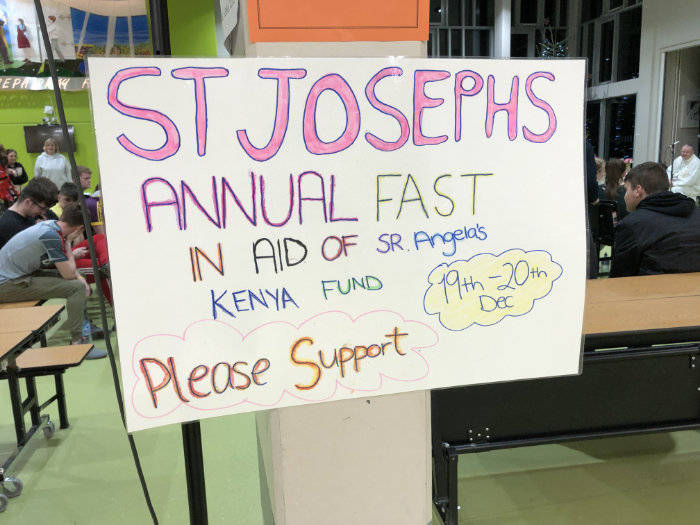 ST JOSEPHS
ANNUAL FAST
IN AID OF SR. Angela's
KENYA FUND
19th - 20th
Dec
Please Support